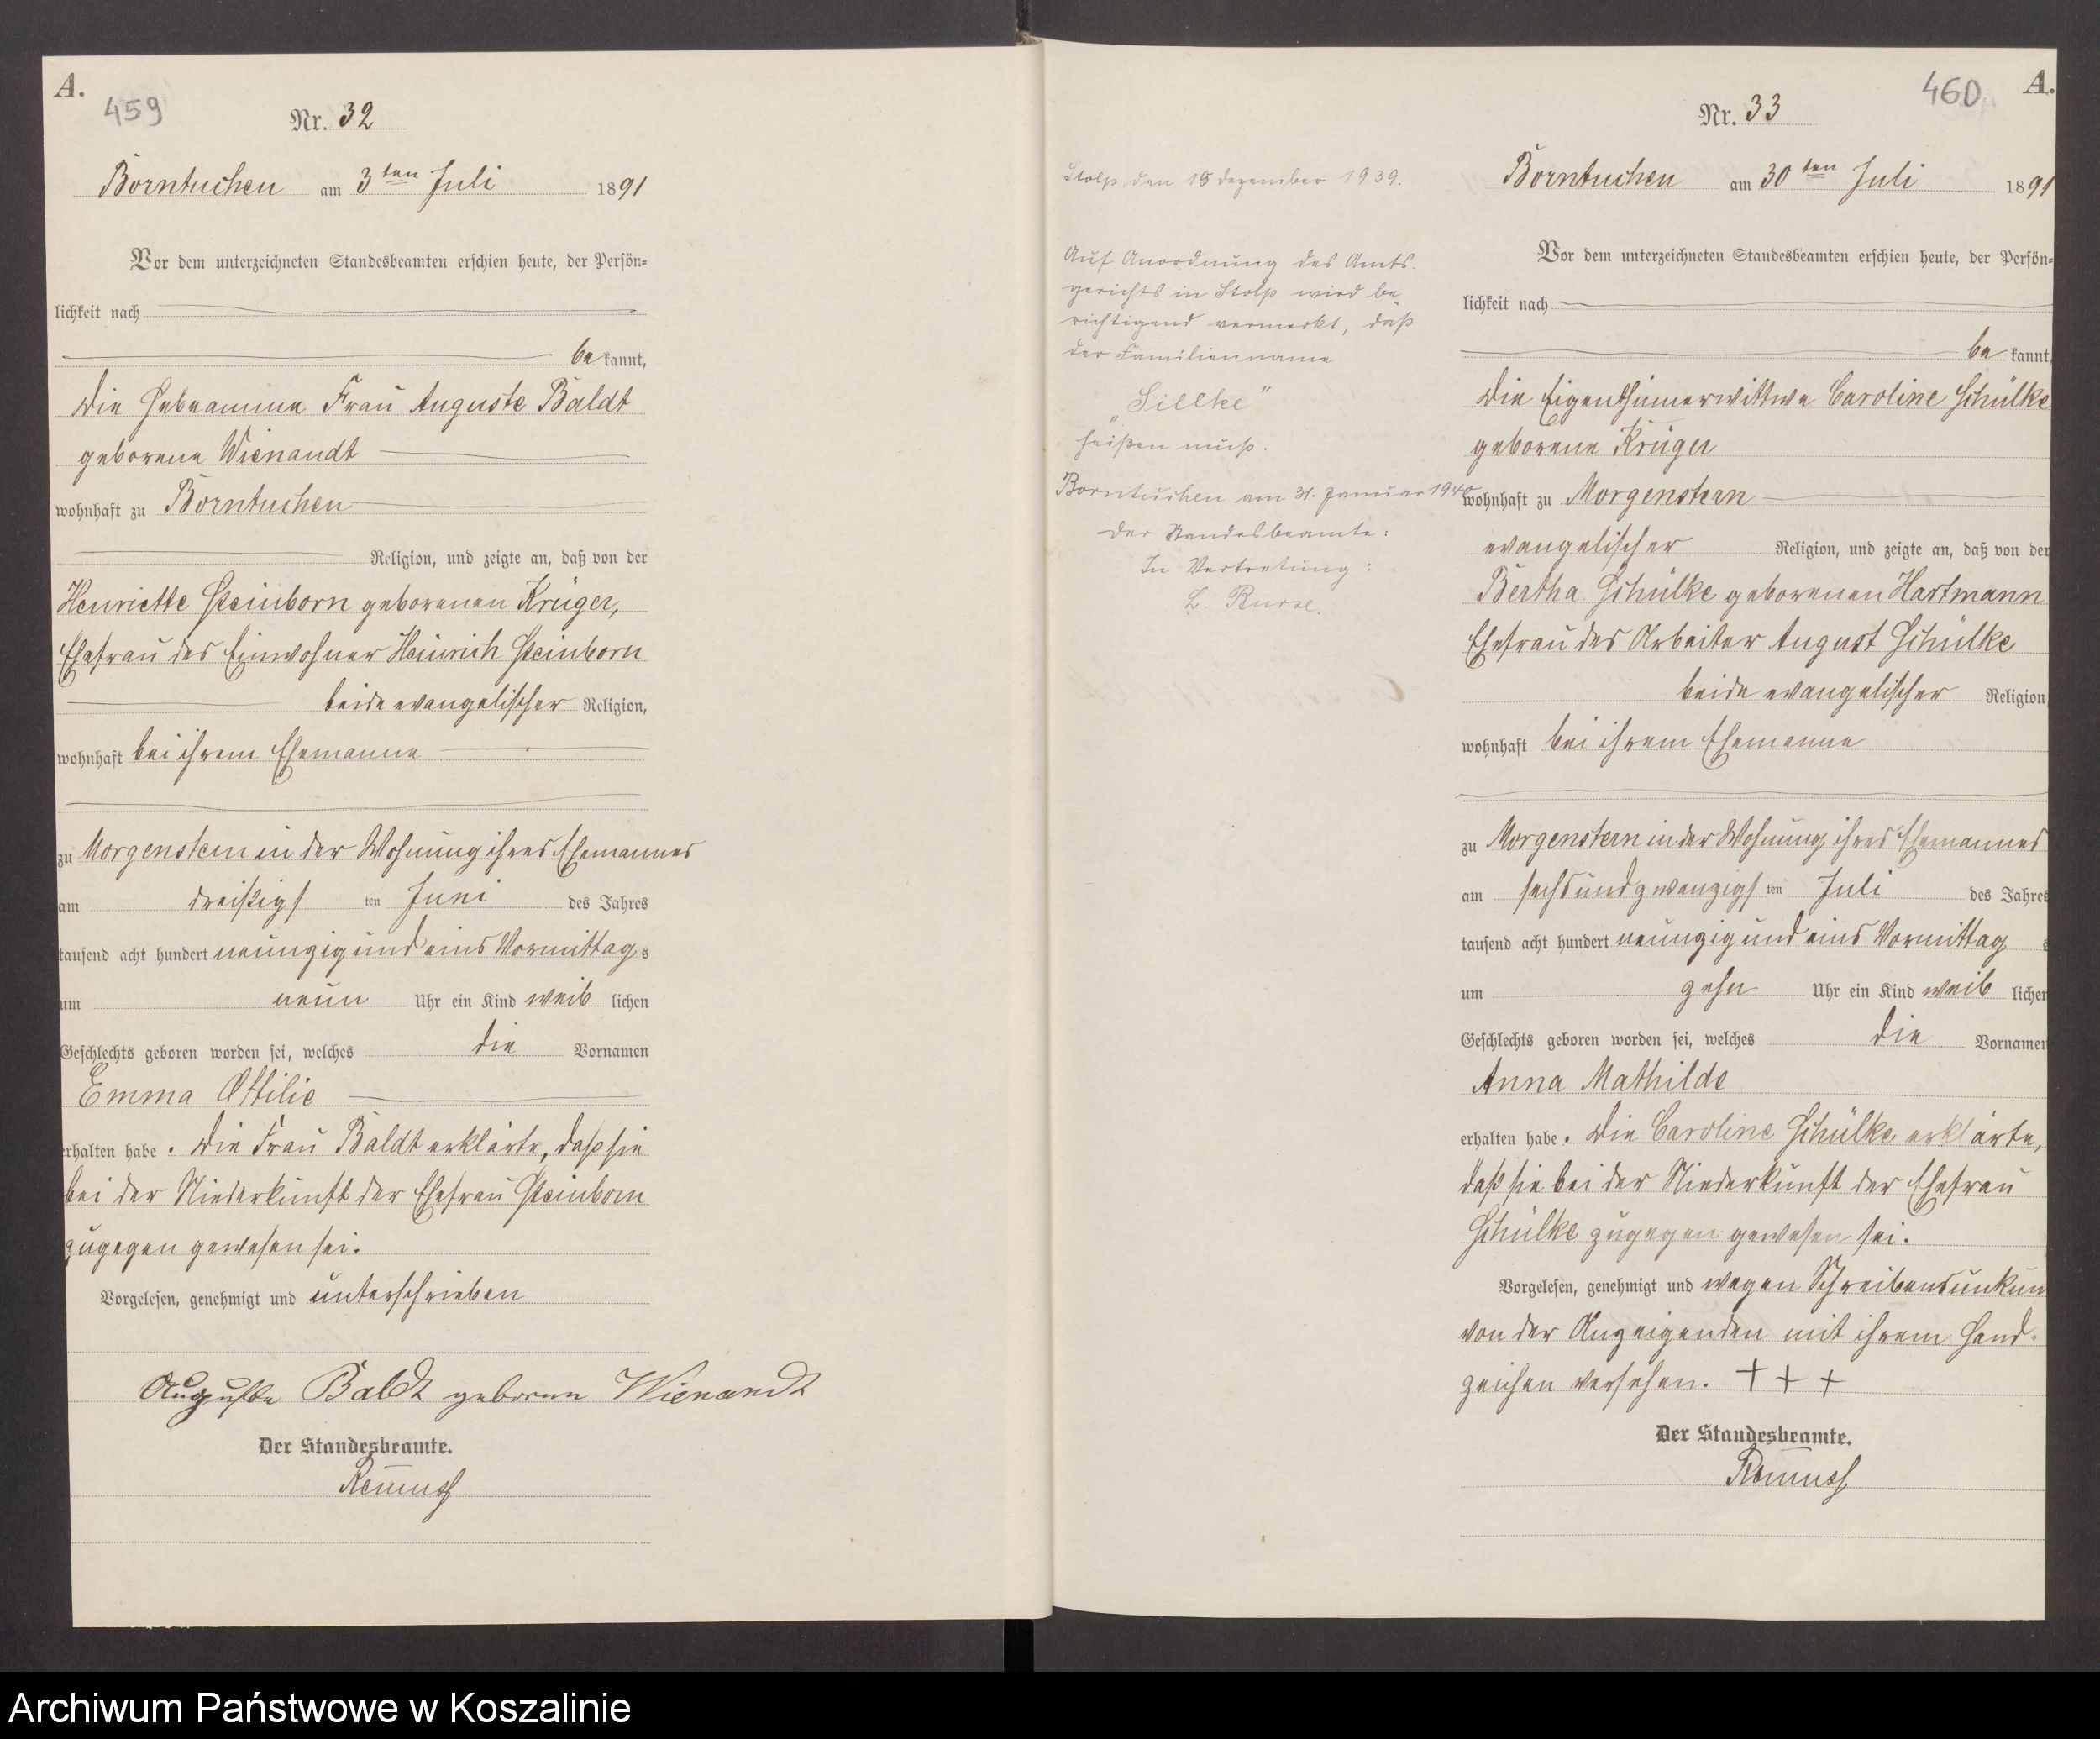 A.
459
Nr. 32
Borntuchen am 3ten Juli 1891
Vor dem unterzeichneten Standesbeamten erschien heute, der Persön=
lichkeit nach
be kannt,
die Hebeamme Frau Auguste Baldt
geborene Wienandt
wohnhaft zu Borntuchen
Religion, und zeigte an, daß von der
Henriette Steinborn geborenen Krüger,
Ehefrau des Einwohner Heinrich Steinborn
beide evangelischer Religion,
wohnhaft bei ihrem Ehemanne
zu Morgenstern in der Wohnung ihres Ehemannes
am dreißigs ten Juni des Jahres
tausend acht hundert neunzig und eins Vormittag s
um neun Uhr ein Kind weib lichen
Geschlechts geboren worden sei, welches die Vornamen
Emma Ottilie
erhalten habe. Die Frau Baldt erklärte, daß sie
bei der Niederkunft der Ehefrau Steinborn
zugegen gewesen sei.
Vorgelesen, genehmigt und unterschrieben
Auguste Baldt geborne Wienandt
Der Standesbeamte.
Stolp, den 15 dezember 1939.
Auf Anordnung des Amts-
gerichts in Stolp wird be
richtigend vermerkt, daß
der Familienname
„Sillke"
heißen muß.
Borntuchen am 31. Januar 1940
Der Standesbeamte:
In Vertretung:
460
A.
Nr. 33
Borntuchen am 30ten Juli 1891
Vor dem unterzeichneten Standesbeamten erschien heute, der Persön=
lichkeit nach
be kannt,
die Eigenthümerwittwe Caroline Schülke
geborene Krüger
wohnhaft zu Morgenstern
evangelischer Religion, und zeigte an, daß von der
Bertha Schülke geborenen Hartmann
Ehefrau des Arbeiter August Schülke
beide evangelischer Religion
wohnhaft bei ihrem Ehemanne
zu Morgenstern in der Wohnung ihres Ehemannes
am sechsundzwanzigs ten Juli des Jahres
tausend acht hundert neunzig und eins Vormittag s
um zehn Uhr ein Kind weib lichen
Geschlechts geboren worden sei, welches die Vornamen
Anna Mathilde
erhalten habe. Die Caroline Schülke erklärte,
daß sie bei der Niederkunft der Ehefrau
Schülke zugegen gewesen sei.
Vorgelesen, genehmigt und wegen Schreibensunkun
von der Anzeigenden mit ihrem Hand-
zeichen versehen. + + +
Der Standesbeamte.
Archiwum Państwowe w Koszalinie